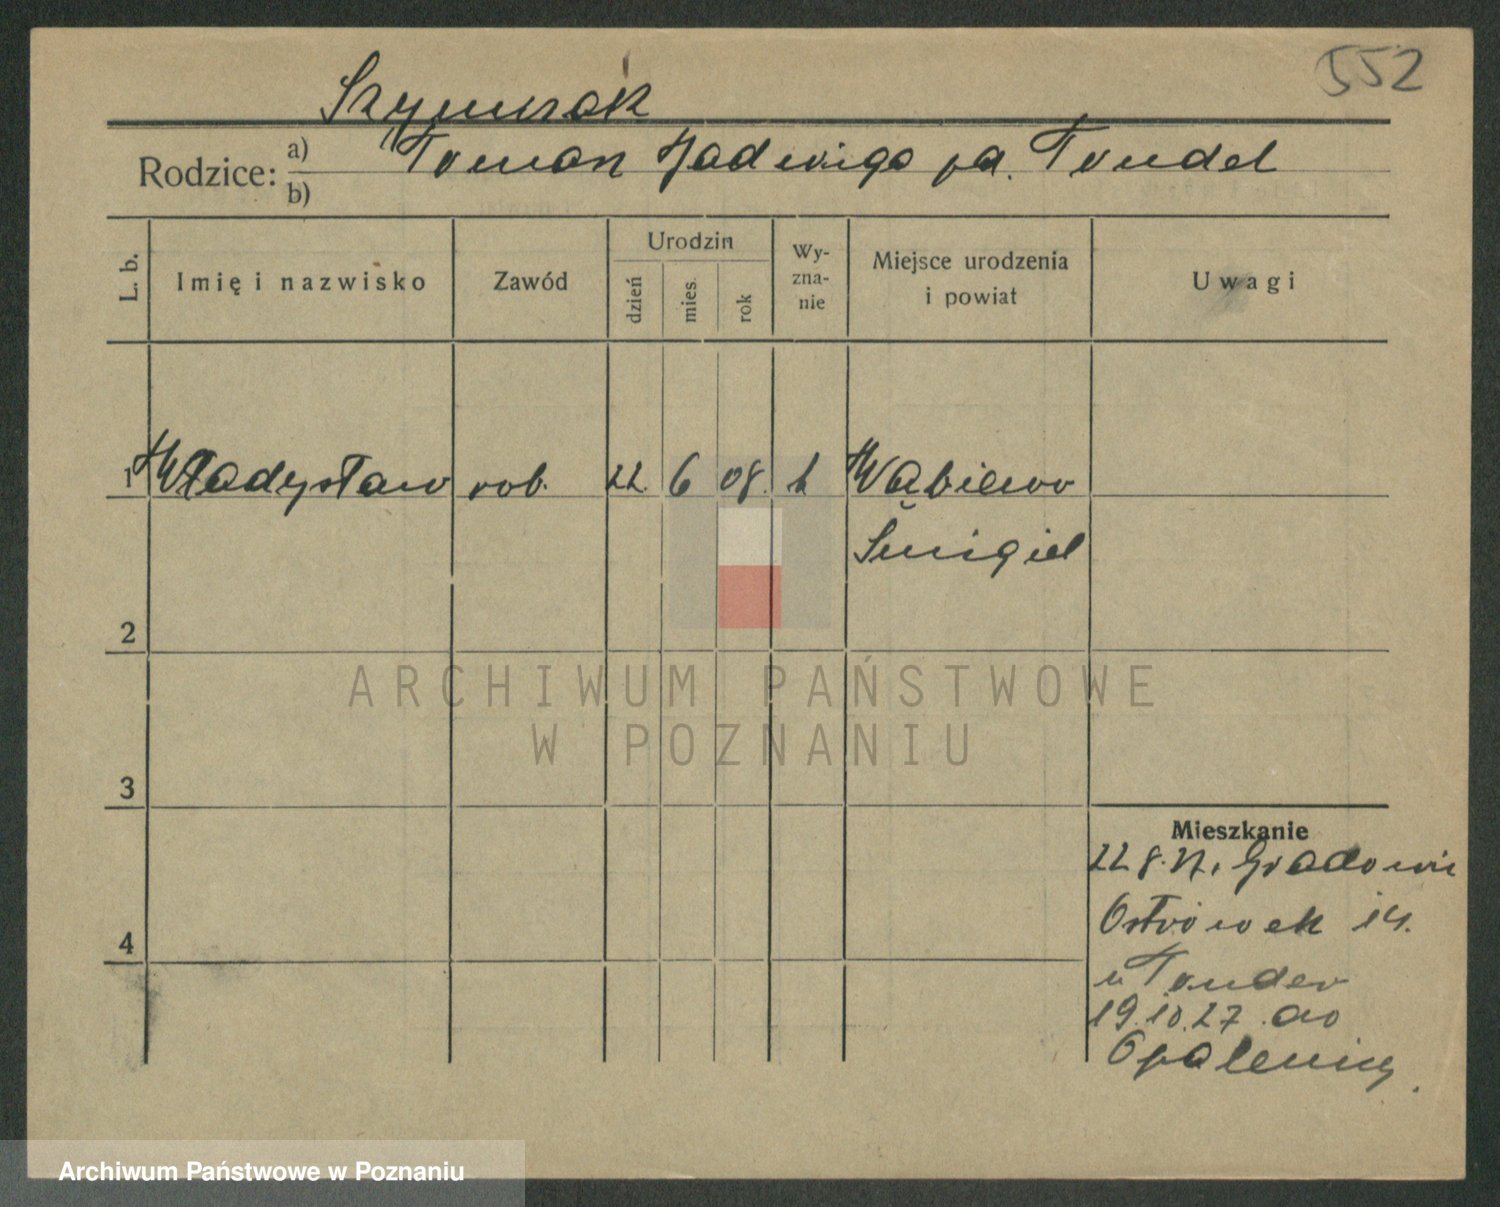 552
Szymczak
Rodzice: a) Toman Jadwiga pd. Tondel
b)
L. b.
Imię i nazwisko
Zawód
Urodzin
dzień
mies.
rok
Wy-
zna-
nie
Miejsce urodzenia
i powiat
Uwagi
1 Władysław rob. 22. 6 08. k Wąbiewo
Śmigiel
2
3
4
Mieszkanie
Ostrówek 14.
u Tonder
19.10.27 do
Opalenicy.
ARCHIWUM PAŃSTWOWE
W POZNANIU
Archiwum Państwowe w Poznaniu